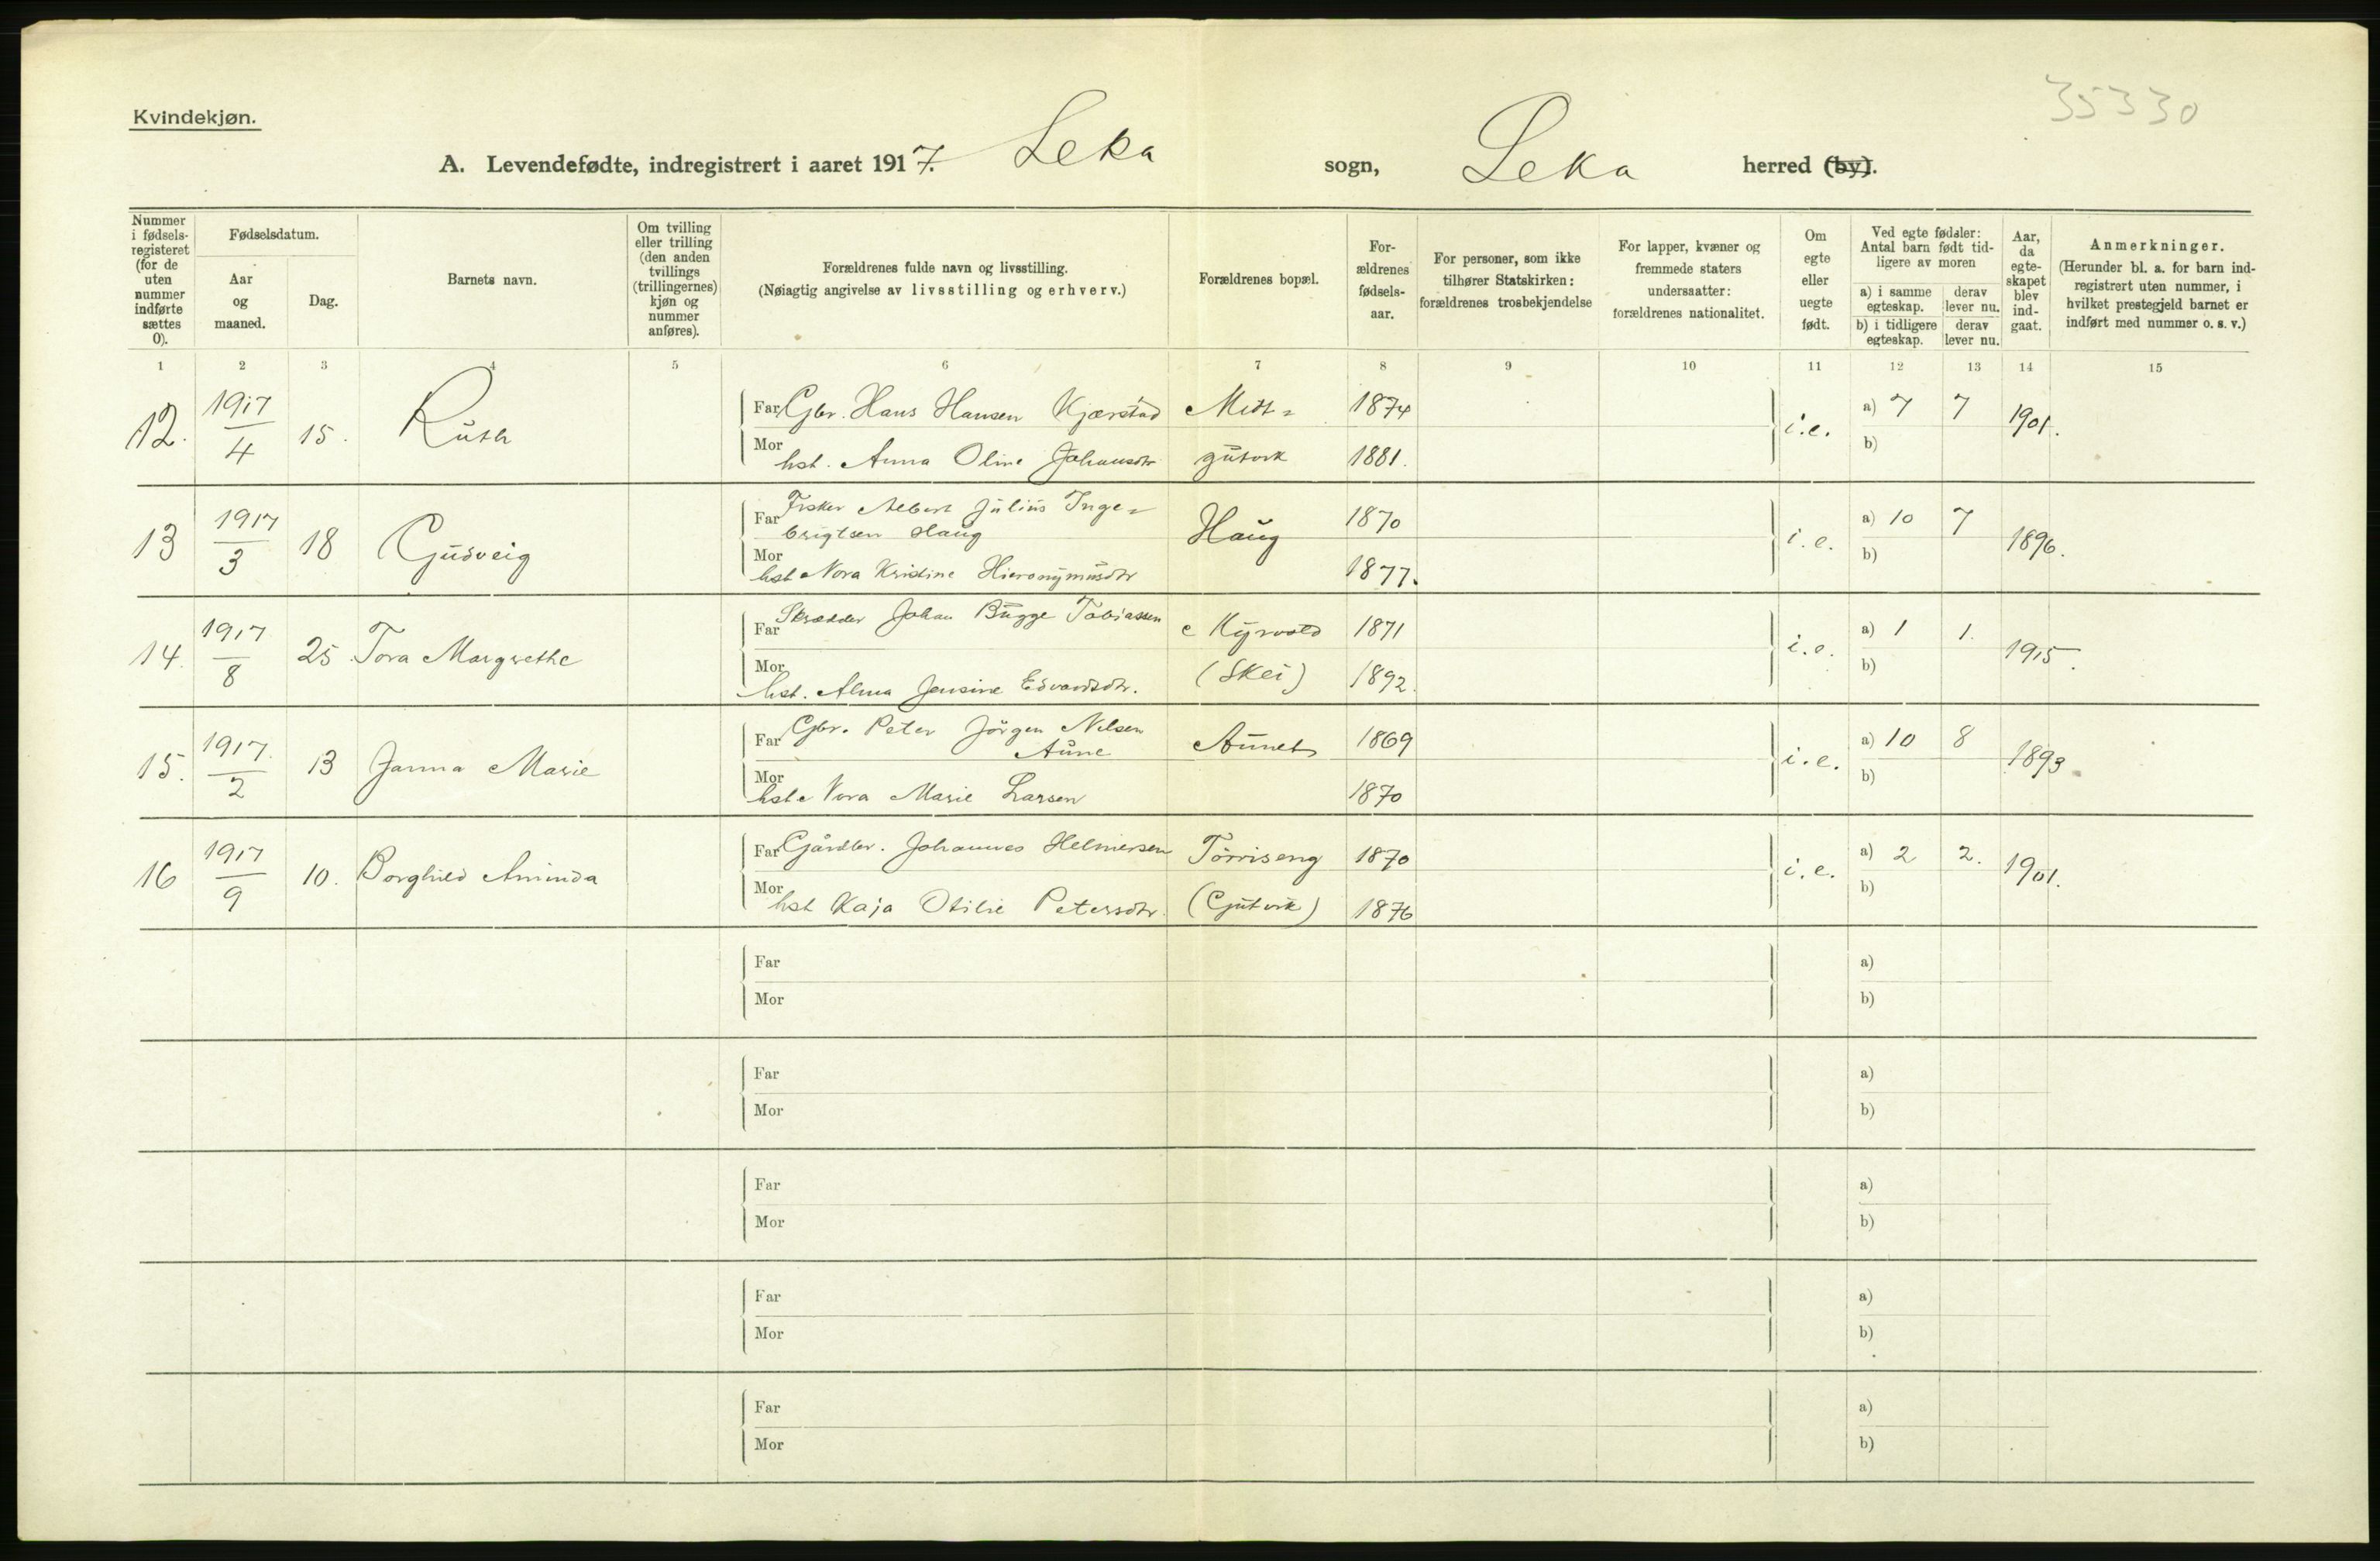 35330
Kvindekjøn.
A. Levendefødte, indregistrert i aaret 1917. Leka sogn, Leka herred (by).
Nummer i fødsels-registeret (for de uten nummer indførte sættes 0).
Fødselsdatum.
Aar og maaned.
Dag.
Barnets navn.
Om tvilling eller trilling (den anden tvillings (trillingernes) kjøn og nummer anføres).
Forældrenes fulde navn og livsstilling.
(Nøiagtig angivelse av livsstilling og erhverv.)
Forældrenes bopæl.
For-ældrenes fødsels-aar.
For personer, som ikke tilhører Statskirken: forældrenes trosbekjendelse
For lapper, kvæner og fremmede staters undersaatter: forældrenes nationalitet.
Om egte eller uegte født.
Ved egte fødsler: Antal barn født tid-ligere av moren
a) i samme egteskap. derav lever nu.
b) i tidligere egteskap. derav lever nu.
Aar, da egte-skapet blev ind-gaat.
Anmerkninger.
(Herunder bl. a. for barn ind-registrert uten nummer, i hvilket prestegjeld barnet er indført med nummer o. s. v.)
1 2 3 4 5 6 7 8 9 10 11 12 13 14 15
12. 1917/4 15. Ruth
Far Gbr. Hans Hansen Kjærstad Midt= 1874 i.e. a) 7 7 1901.
Mor hst. Anna Oline Johansdtr gutvik 1881. b)
13 1917/3 18 Gudveig
Far Fisker Albert Julius Inge=
brigtsen Haug Haug 1870 i.e. a) 10 7 1896.
Mor hst Nora Kristine Hieronymusdtr 1877. b)
14. 1917/8 25 Tora Margrethe
Far Skrædder Johan Bugge Tobiassen 1871 i.e. a) 1 1. 1915.
Mor hst. Alma Jensine Edvardsdtr. (Skei) 1892. b)
15. 1917/2 13 Janna Marie
Far Gbr. Peter Jörgen Nilsen
Aune Aunet 1869 i.e. a) 10 8 1893
Mor hst. Nora Marie Larsen 1870 b)
16 1917/9 10. Borghild Aminda
Far Gårdbr. Johannes Helmersen Törriseng 1870 i.e. a) 2 2. 1901.
Mor hst Kaja Otilie Petersdtr. (Gutvik) 1876 b)
Far a)
Mor b)
Far a)
Mor b)
Far a)
Mor b)
Far a)
Mor b)
Far a)
Mor b)